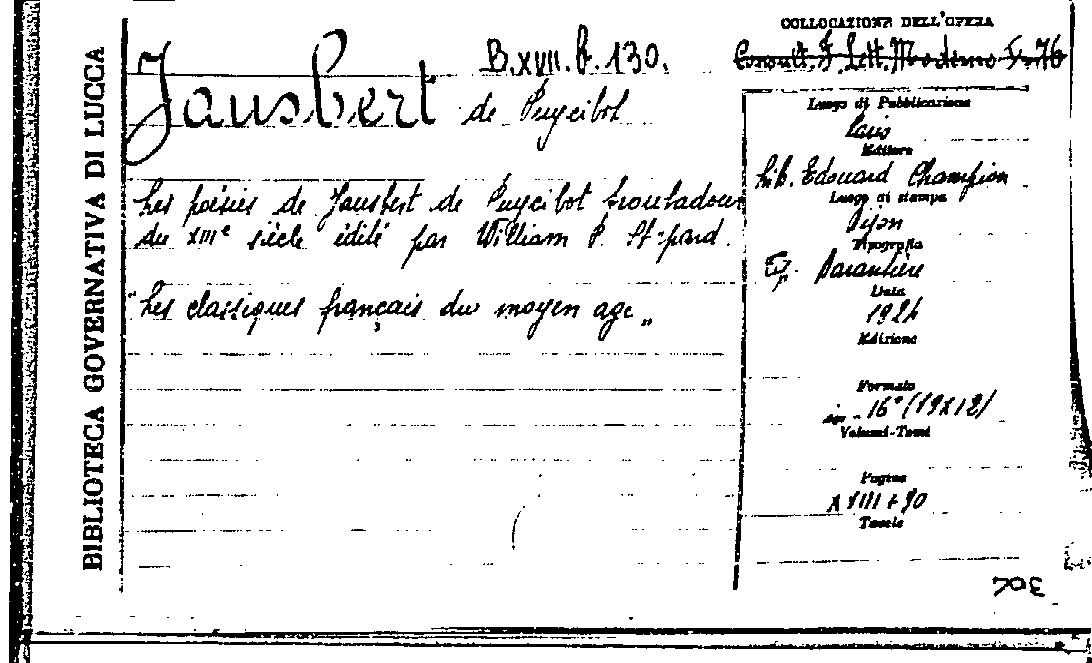 BIBLIOTECA GOVERNATIVA DI LUCCA
Jausbert de Puycibot
B.XVII.b.130.
Les poésies de Jausbert de Puycibot troubadour
du XIIIe siècle édité par William P. St=pard.
"Les classiques français du moyen age„
COLLOCAZIONE DELL'OPERA
Consult. F. Lett. Moderno Fr 76
Luogo di Pubblicazione
Paris
Editore
Lib. Edouard Champion
Luogo di stampa
Dijon
Tipografia
Tip. Darantière
Data
1924
Edizione
Formato
in-16° (19x12)
Volumi-Tomi
Pagine
XVIII+90
Tavole